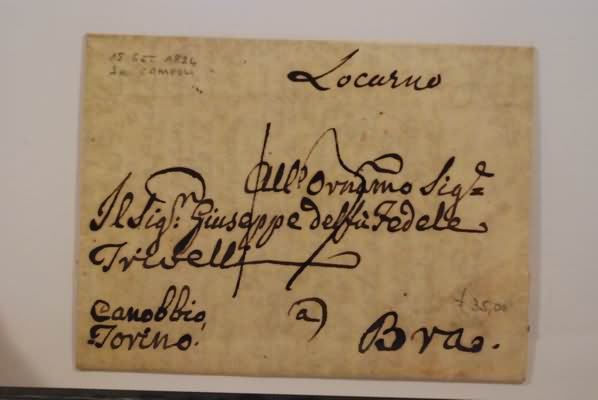 15 SET 1824
Da CAMPOLI
Locarno
All'Ornmo Sigr
Il Sigr. Giuseppe delfù Fedele
Trivelli
Canobbio,
Torino.
a
Bra.
£ 35,00